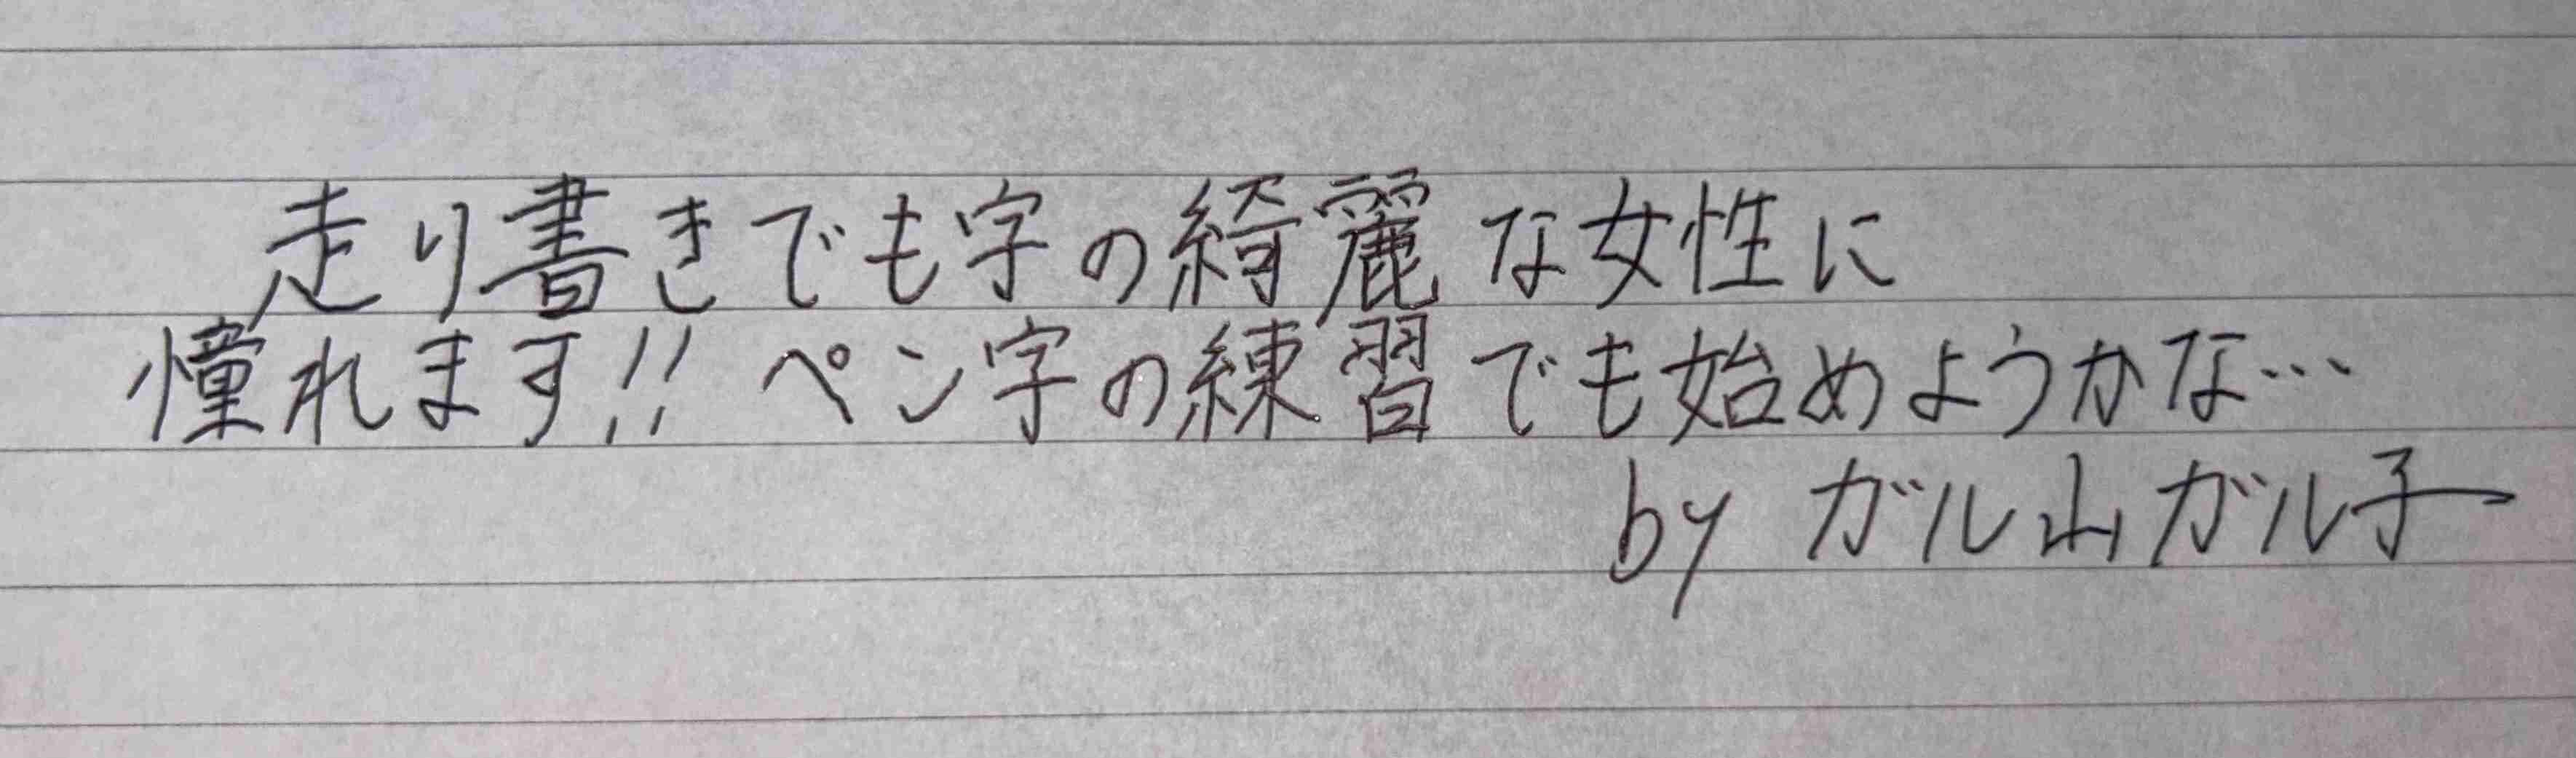 走り書きでも字の綺麗な女性に
憧れます!! ペン字の練習でも始めようかな…
by ガル山ガル子